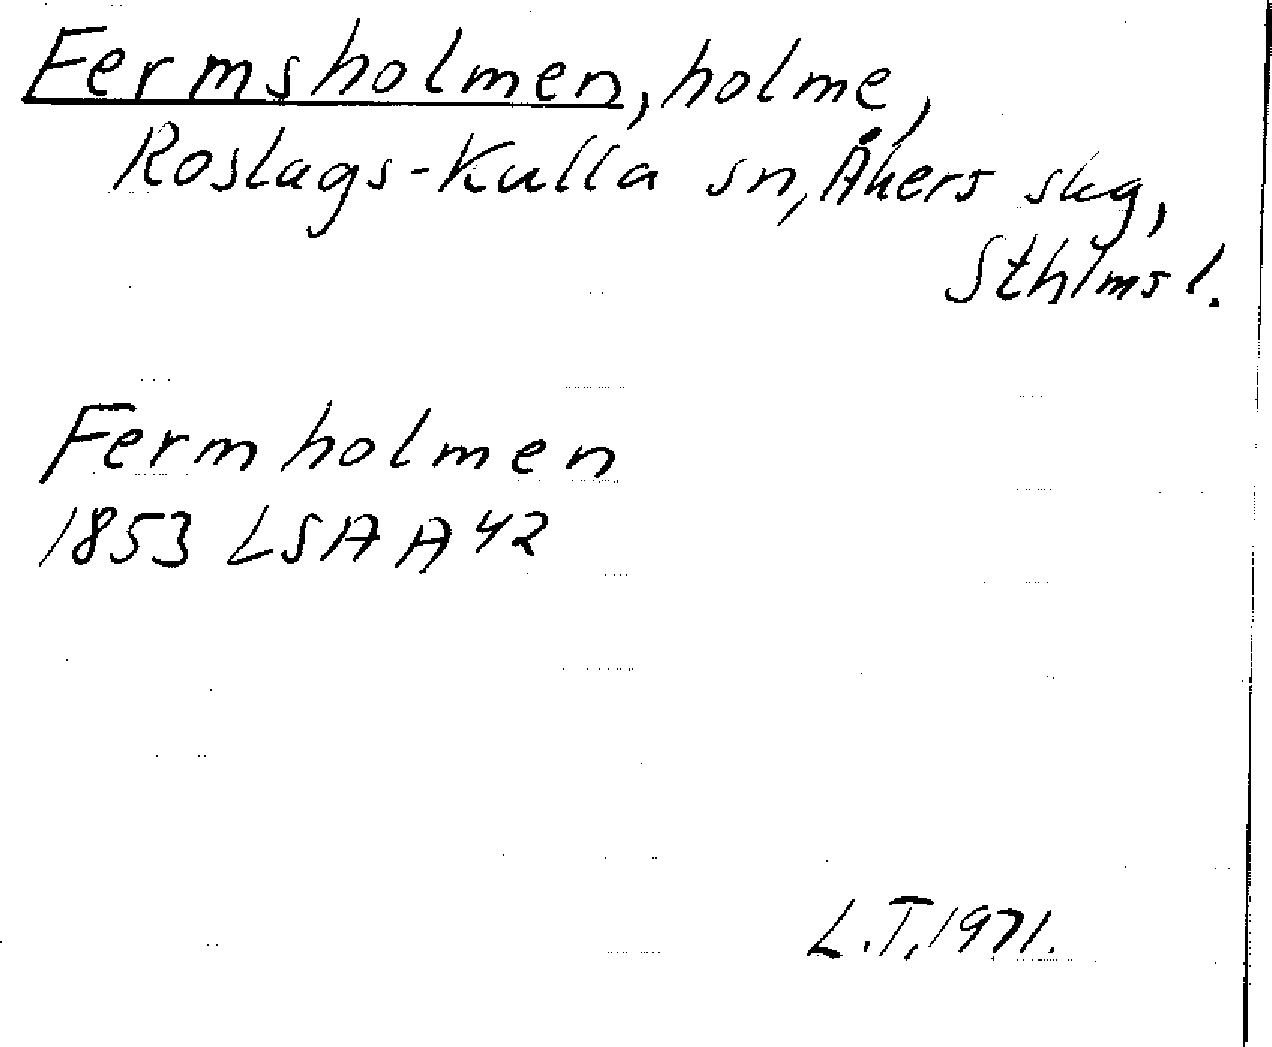 Fermsholmen, holme,
Roslags-Kulla sn, Åkers skg,
Sthlms l.
Fermholmen
1853 LSA A 42
L.T. 1971.